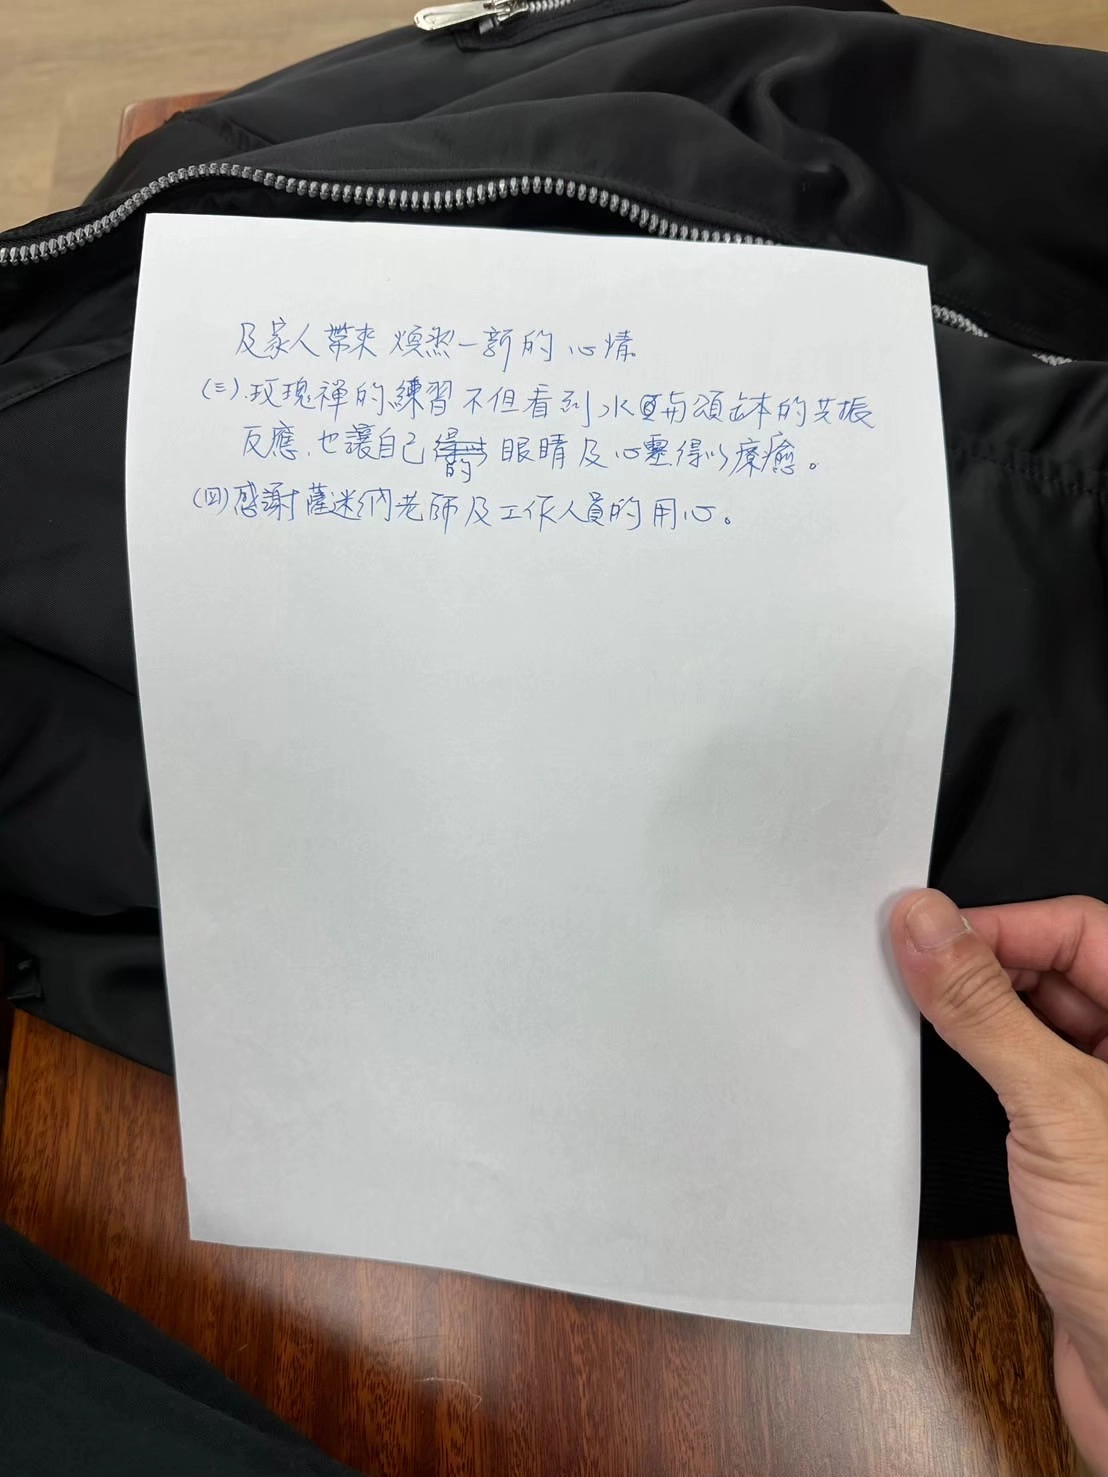 及家人帶來煥然一新的心情。
(三).玫瑰禪的練習不但看到水與頌缽的共振
反應,也讓自己的眼睛及心靈得以療癒。
(四)感謝薩迷納老師及工作人員的用心。